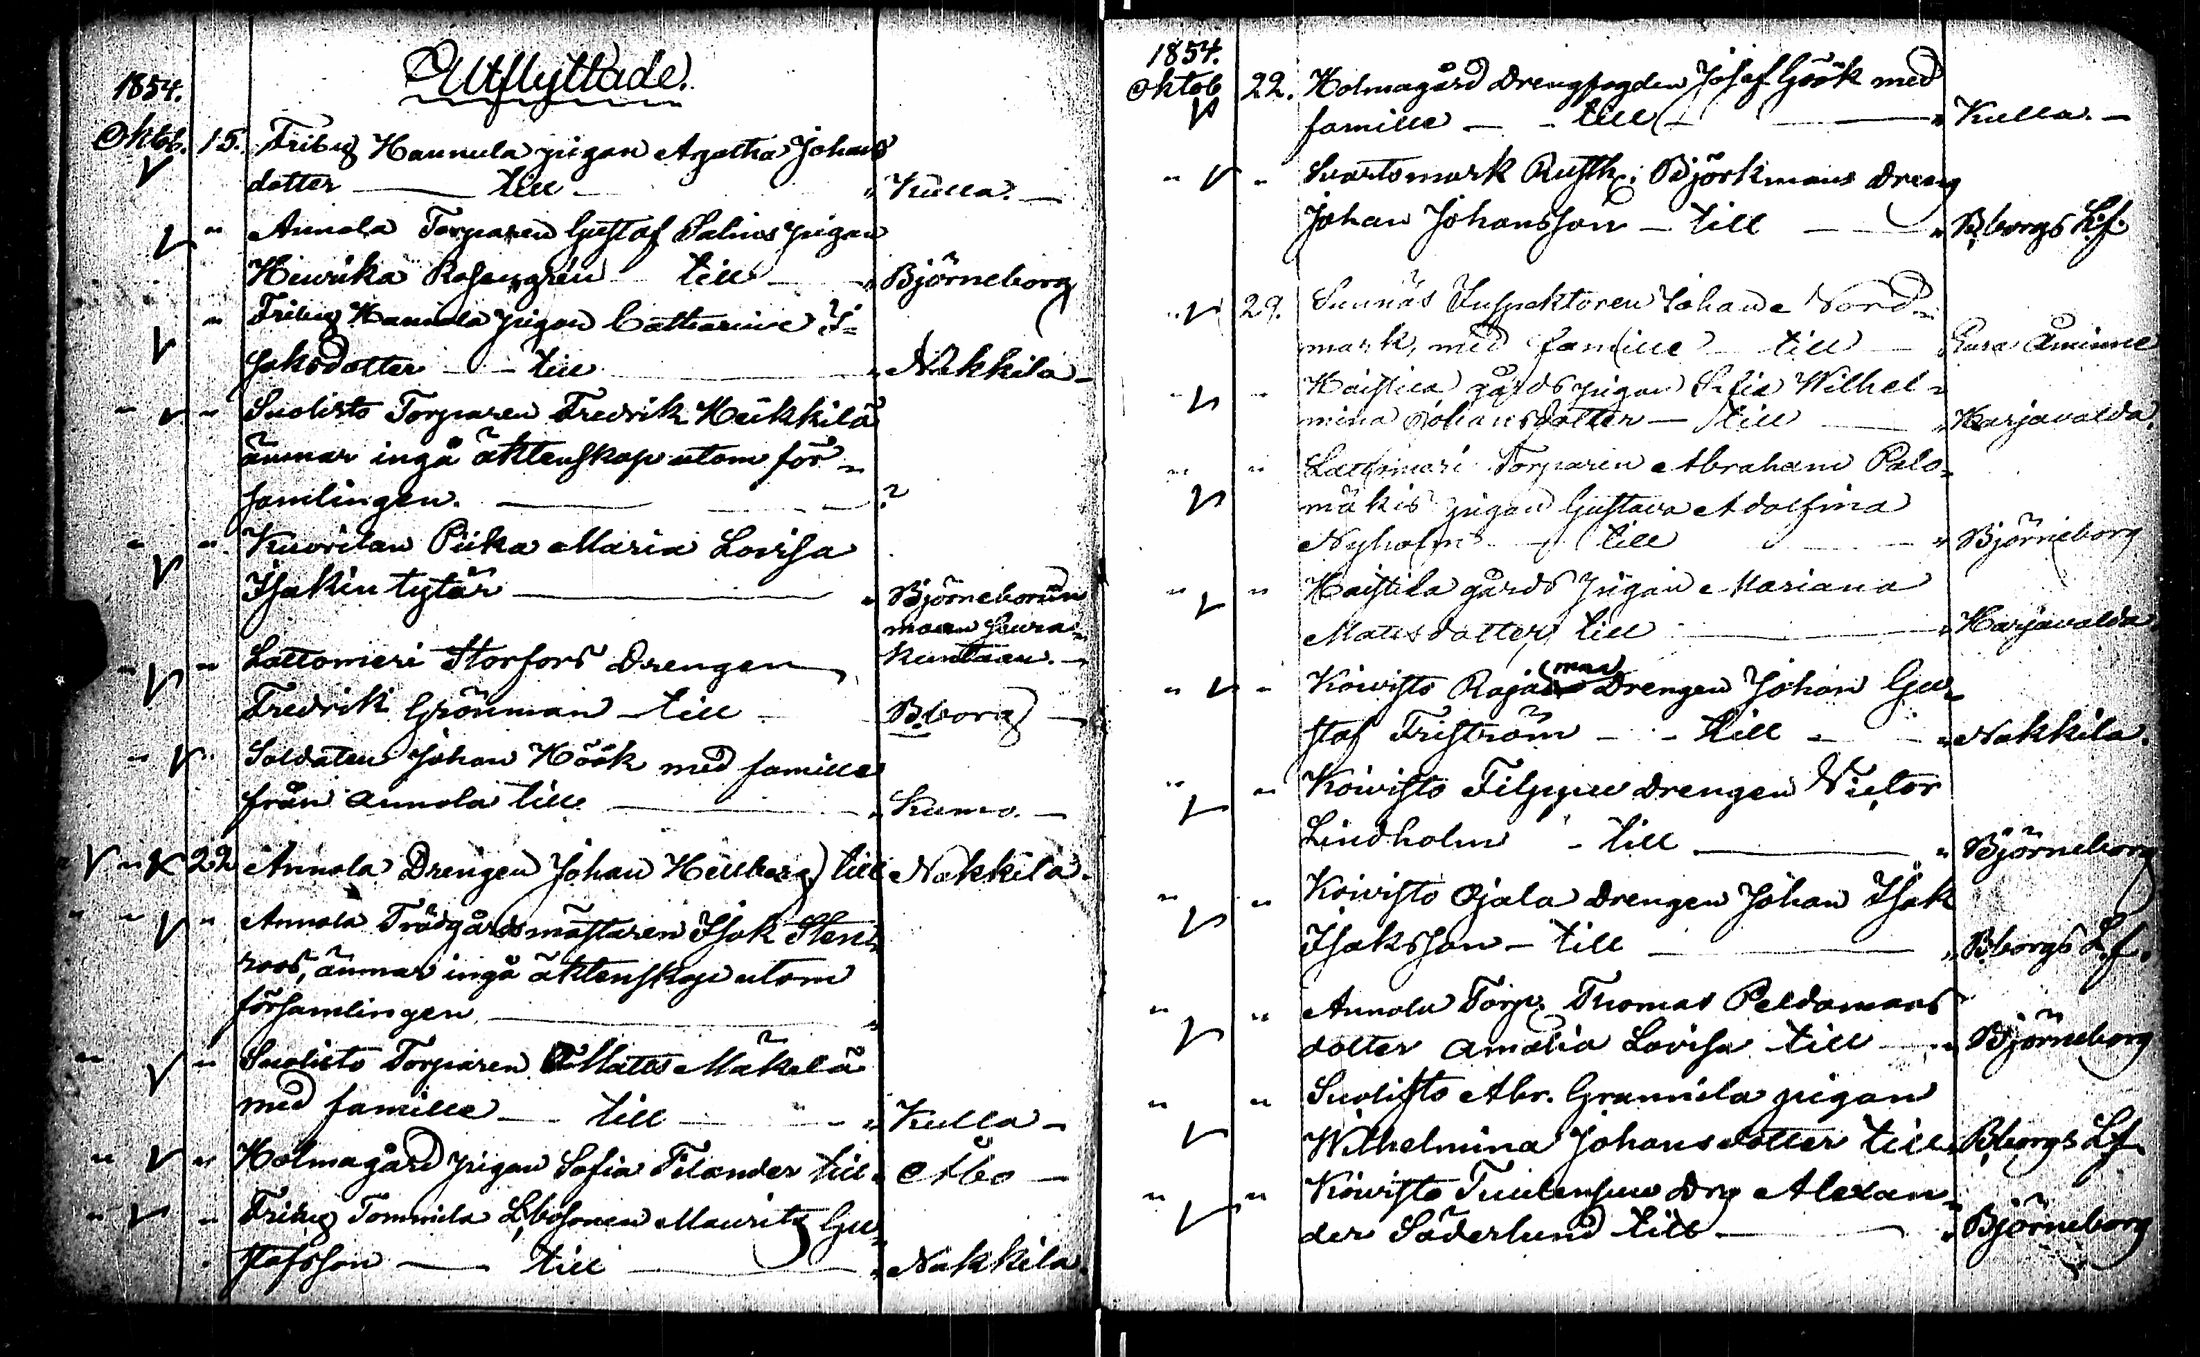 Utflyttade.
1854.
Oktob. 15. Friby Hannula pigan Agatha Johans
dotter — till — " Kulla. —
" Annola Torparen Gustaf Salins pigan
Henrika Rosengrén till — " Björneborg
" Friby Hannula pigan Catharina I-
saksdotter — till — " Nakkila —
" " Suolisto Torparen Fredrik Heikkilä
ämnar ingå äktenskap utom för-
samlingen. — ?
" " Kuorilan Piika Maria Lovisa
Isakin tytär — " Björneborin
maan seura-
kuntaan. —
" " Lattomeri Storfors Drengen
Fredrik Grönman — till — B:borg —
" Soldaten Johan Höök med familie
från Annola till — " Kumo. —
" 22 Annola Drengen Johan Hellberg till Nakkila.
" " " Annola Trädgårdsmästaren Isak Sten-
roos, ämnar ingå äktenskap utom
församlingen — "
" " Suolisto Torparen Matts Mäkelä
med familie — till — " Kulla —
" " Holmagård pigan Sofia Filander till " Åbo —
" " Friby Tommila Mauritz Gu-
stafsson — till — " Nakkila.
1854.
Oktob 22. Holmagård Drengfogden Josef Göök med
familie — till — " Kulla. —
" " Svartsmark Rusth: Björkmans Dreng
Johan Johansson — till — " B:borgs L.f.
" 29. Sunnäs Inspektoren Johan Nord-
mark, med familie — till — Åminne
" " Haistila gårds pigan Sofia Wilhel-
mina Johansdotter — till — " Harjavalda.
" " Lattomeri Torparen Abraham Palo-
mäkis pigan Gustava Adolfina
Nyholm — till — " Björneborg
" " Haistila gårds pigan Mariana
Mattsdotter, till — " Harjavalda.
" " Koivisto Drengen Johan Gu-
staf Friström — till — " Nakkila.
" " Koivisto Filppu Drengen Victor
Lindholm — till — " Björneborg
" " Koivisto Ojala Drengen Johan Isak
Isaksson — till — " B:borgs L.f.
" " Annola Torp. Thomas Peldomaas
dotter Amalia Lovisa till — " Björneborg
" " Suolisto Abr. Grannila pigan
Wilhelmina Johansdotter till B:borgs L.f.
" " Koivisto Drg Alexan-
der Söderlund till — " Björneborg